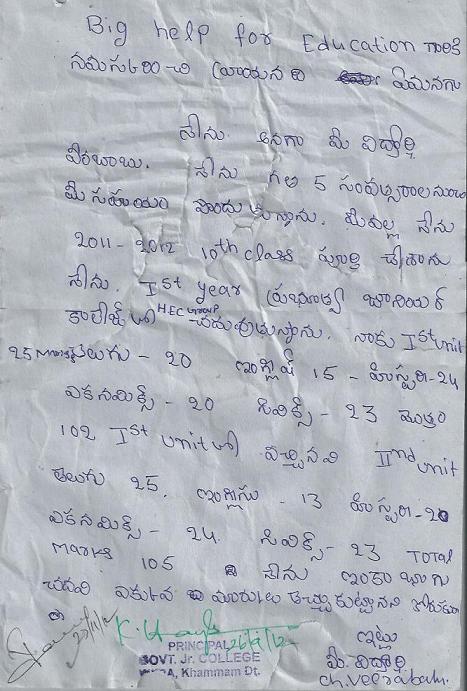 Big help for Education గారికి
నమస్కరించి వ్రాయునది ఏమనగా
నేను అనగా మీ విద్యార్థి
వీరబాబు. నేను గత 5 సంవత్సరాల నుండి
మీ సహాయం పొందుతున్నాను. మీవల్ల నేను
2011-2012 10th class పూర్తి చేశాను
నేను. Ist year ప్రభుత్వ జూనియర్
కాలేజ్ లో HEC GROUP చదువుతున్నాను. నాకు Ist unit
25 Marks తెలుగు - 20 ఇంగ్లీష్ 15 - హిస్టరీ-24
ఎకనమిక్స్ - 20 సివిక్స్ - 23 మొత్తం
102 Ist unit లో వచ్చినవి IInd unit
తెలుగు 25. ఇంగ్లీసు - 13 హిస్టరీ-20
ఎకనమిక్స్ - 24. సివిక్స్ - 23 TOTAL
Marks 105 నేను ఇంకా బాగా
చదివి ఎక్కువ మార్కులు తెచ్చుకుంటానని కోరుకుంటూ
ఇట్లు
26/9/12
PRINCIPAL
GOVT. Jr. COLLEGE
Khammam Dt.
మీ విద్యార్థి
ch.veerababu.